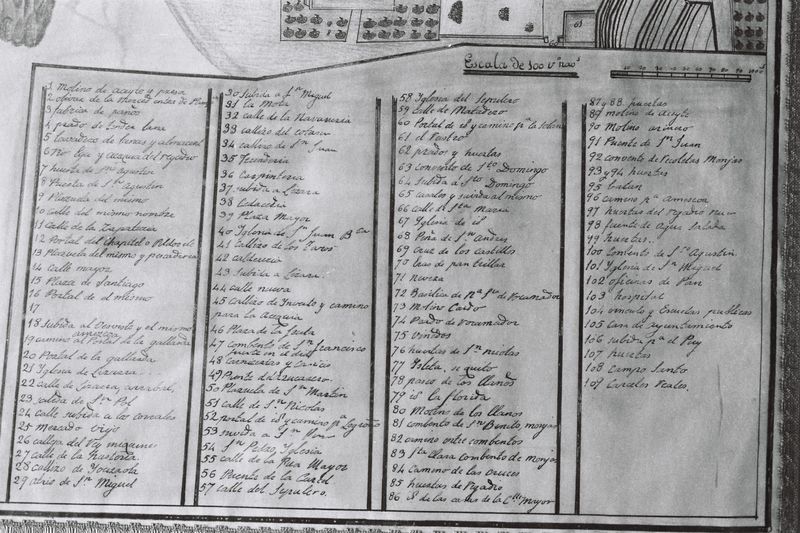 65
Escala de 100 v.s nav.s
1 Molino de aceyte y presa
2 olivar de la Merced antes de
3 fabrica de paños
4 prado de lana
5 Lavadero de lanas y
6 Rio Ega y acequia del Regadio
7 huerta de Sn. agustin
8 Puerta de Sn. agustin
9 Plazuela del mismo
10 calle del mismo nombre
11 Calle de la Zapateria
12 Portal del Chapitel o
13 Plazuela del mismo y posaderia
14 calle mayor
15 Plaza de Santiago
16 Portal de el mismo
17
18 Subida al y el mismo
19 camino al Portal de la gallarda
amescoa
20 Portal de la gallarda
21 Iglesia de Lizarra
22 calle de Lizarra, arrabal,
23 Salida de Sn. Pol
24 calle subida a los corrales
25 Mercado viejo
26 calleja del Rey
27 calle de la
28 callizo de
29 atrio de Sn. Miguel
30 Subida a Sn. Miguel
31 la Mota
32 calle de la Navarreria
33 callizo del
34 callizo de Sn. Juan
35 TeceNderia
36 Carpinteria
37 subida a Lizara
38 Calaceria
39 Plaza Mayor
40 Iglesia de Sn. Juan Bta
41 Callizo de los Toros
42 caldereria
43 Subida a Lizara.
44 calle nueva
45 callizo de y camino
para la Acequia
46 Plaza de la
47 Combento de Sn. francisco
fuente en el de id
48 Carnicerias y
49 Puente del Azucarero.
50 Plazuela de Sn. Martin
51 calle de Sn. Nicolas
52 portal de id y camino pa. Logroño
53 Subida a Sn. Pedro
54 Sn. Pedro, Iglesia
55 calle de la Rua Mayor
56 Puente de la Carcel
57 calle del Sepulcro.
58 Iglesia del Sepulcro
59 Calle de Matadero
60 Portal de id y camino pa. la Solana
61 el Rastro
62 prados y huertas
63 Convento de Sto. Domingo
64 Subida a Sto. Domingo
65 corales y subida al mismo
66 calle de Sta. Maria
67 Iglesia de id
68 Peña de Sn. Andres
69 Cruz de los Castillos
70 Eras de pan trillar
71 Nevera
72 Basilica de Na. Sa. de Rocamador
73 Molino Cardo
74 Pardo de Rocamador
75 Vinedos
76 huertas de Sn. nicolas
77 Isleta, su
78 paseo de los Llanos
79 id la florida
80 Molino de los Llanos
81 Combento de Sn. Benito, monjas
82 camino entre combentos
83 Sta. Clara combento de monjas
84 Camino de las Cruces
85 huertas de Regadio
86 id de las casas de la Clle Mayor
87 y 88 puertas
89 molino de aceyte
90 Molino arinero
91 Puente de Sn. Juan
92 convento de Recoletas Monjas
93 y 94 huertas
95 Batan
96 camino pa. amescoa
97 huertas del Regadio nuevo
98 fuente de Agua Salada
99 huertas.
100 Combento de Sn. Agustin.
101 Iglesia de Sn. Miguel
102 oficinas de Pan
103 hospital
104 vinculo y Escuelas publicas
105 Casa de ayuntamiento
106 subida pa. el Puy
107 huertas
108 campo Santo
109 Carceles Reales.